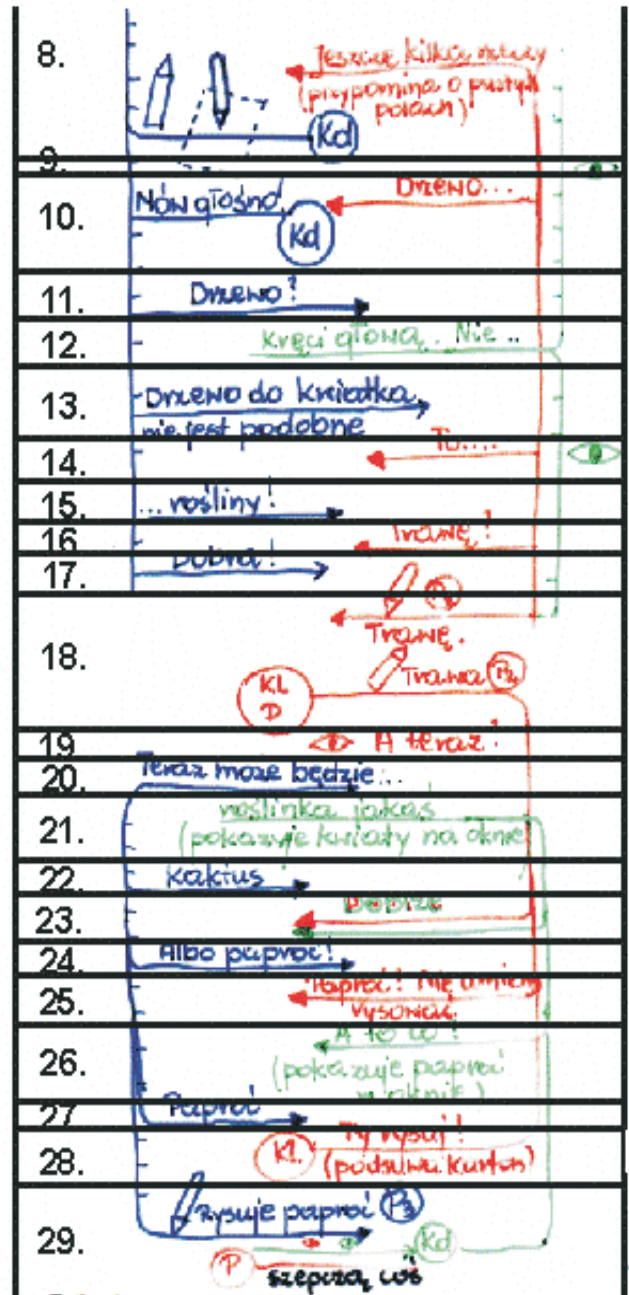 8.
Jeszcze kilka
(przypomina o pustych
polach)
Kd
9.
10.
Mów głośno
Drzewo...
Kd
11.
Drzewo!
12.
Kręci głową. Nie..
13.
Drzewo do kwiatka
nie jest podobne
14.
To....
15.
... rośliny!
16
Trawę!
17.
Dobra!
18.
Trawę.
Trawa P2
KL
D
19
A teraz!
20.
Teraz może będzie...
21.
roślinka jakaś
(pokazuje kwiaty na oknie
22.
Kaktus
23.
Dobrze
24.
Albo paproć!
25.
Paproć! Nie umiem
26.
A to co!
(pokazuje paproć
w oknie)
27
Paproć
28.
Kl.
Ty rysuj!
(podsuwa karton)
29.
Rysuje paproć P3
P
Kd
szepczą coś